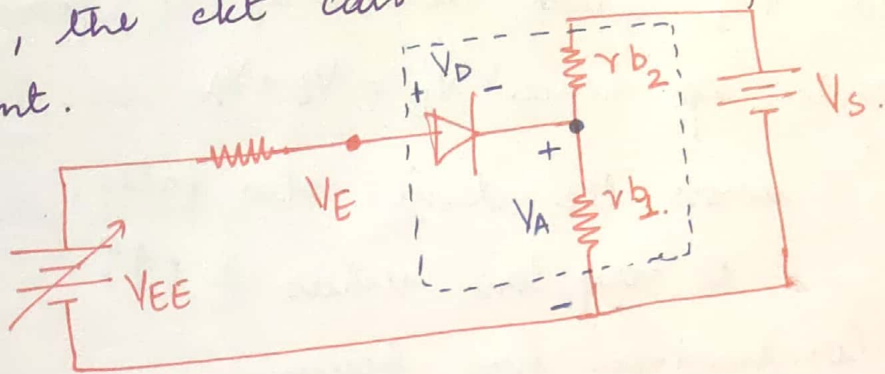 , the ckt can
nt.
+ VD -
r b2
VS.
VE
+
VA
r b1.
-
VEE